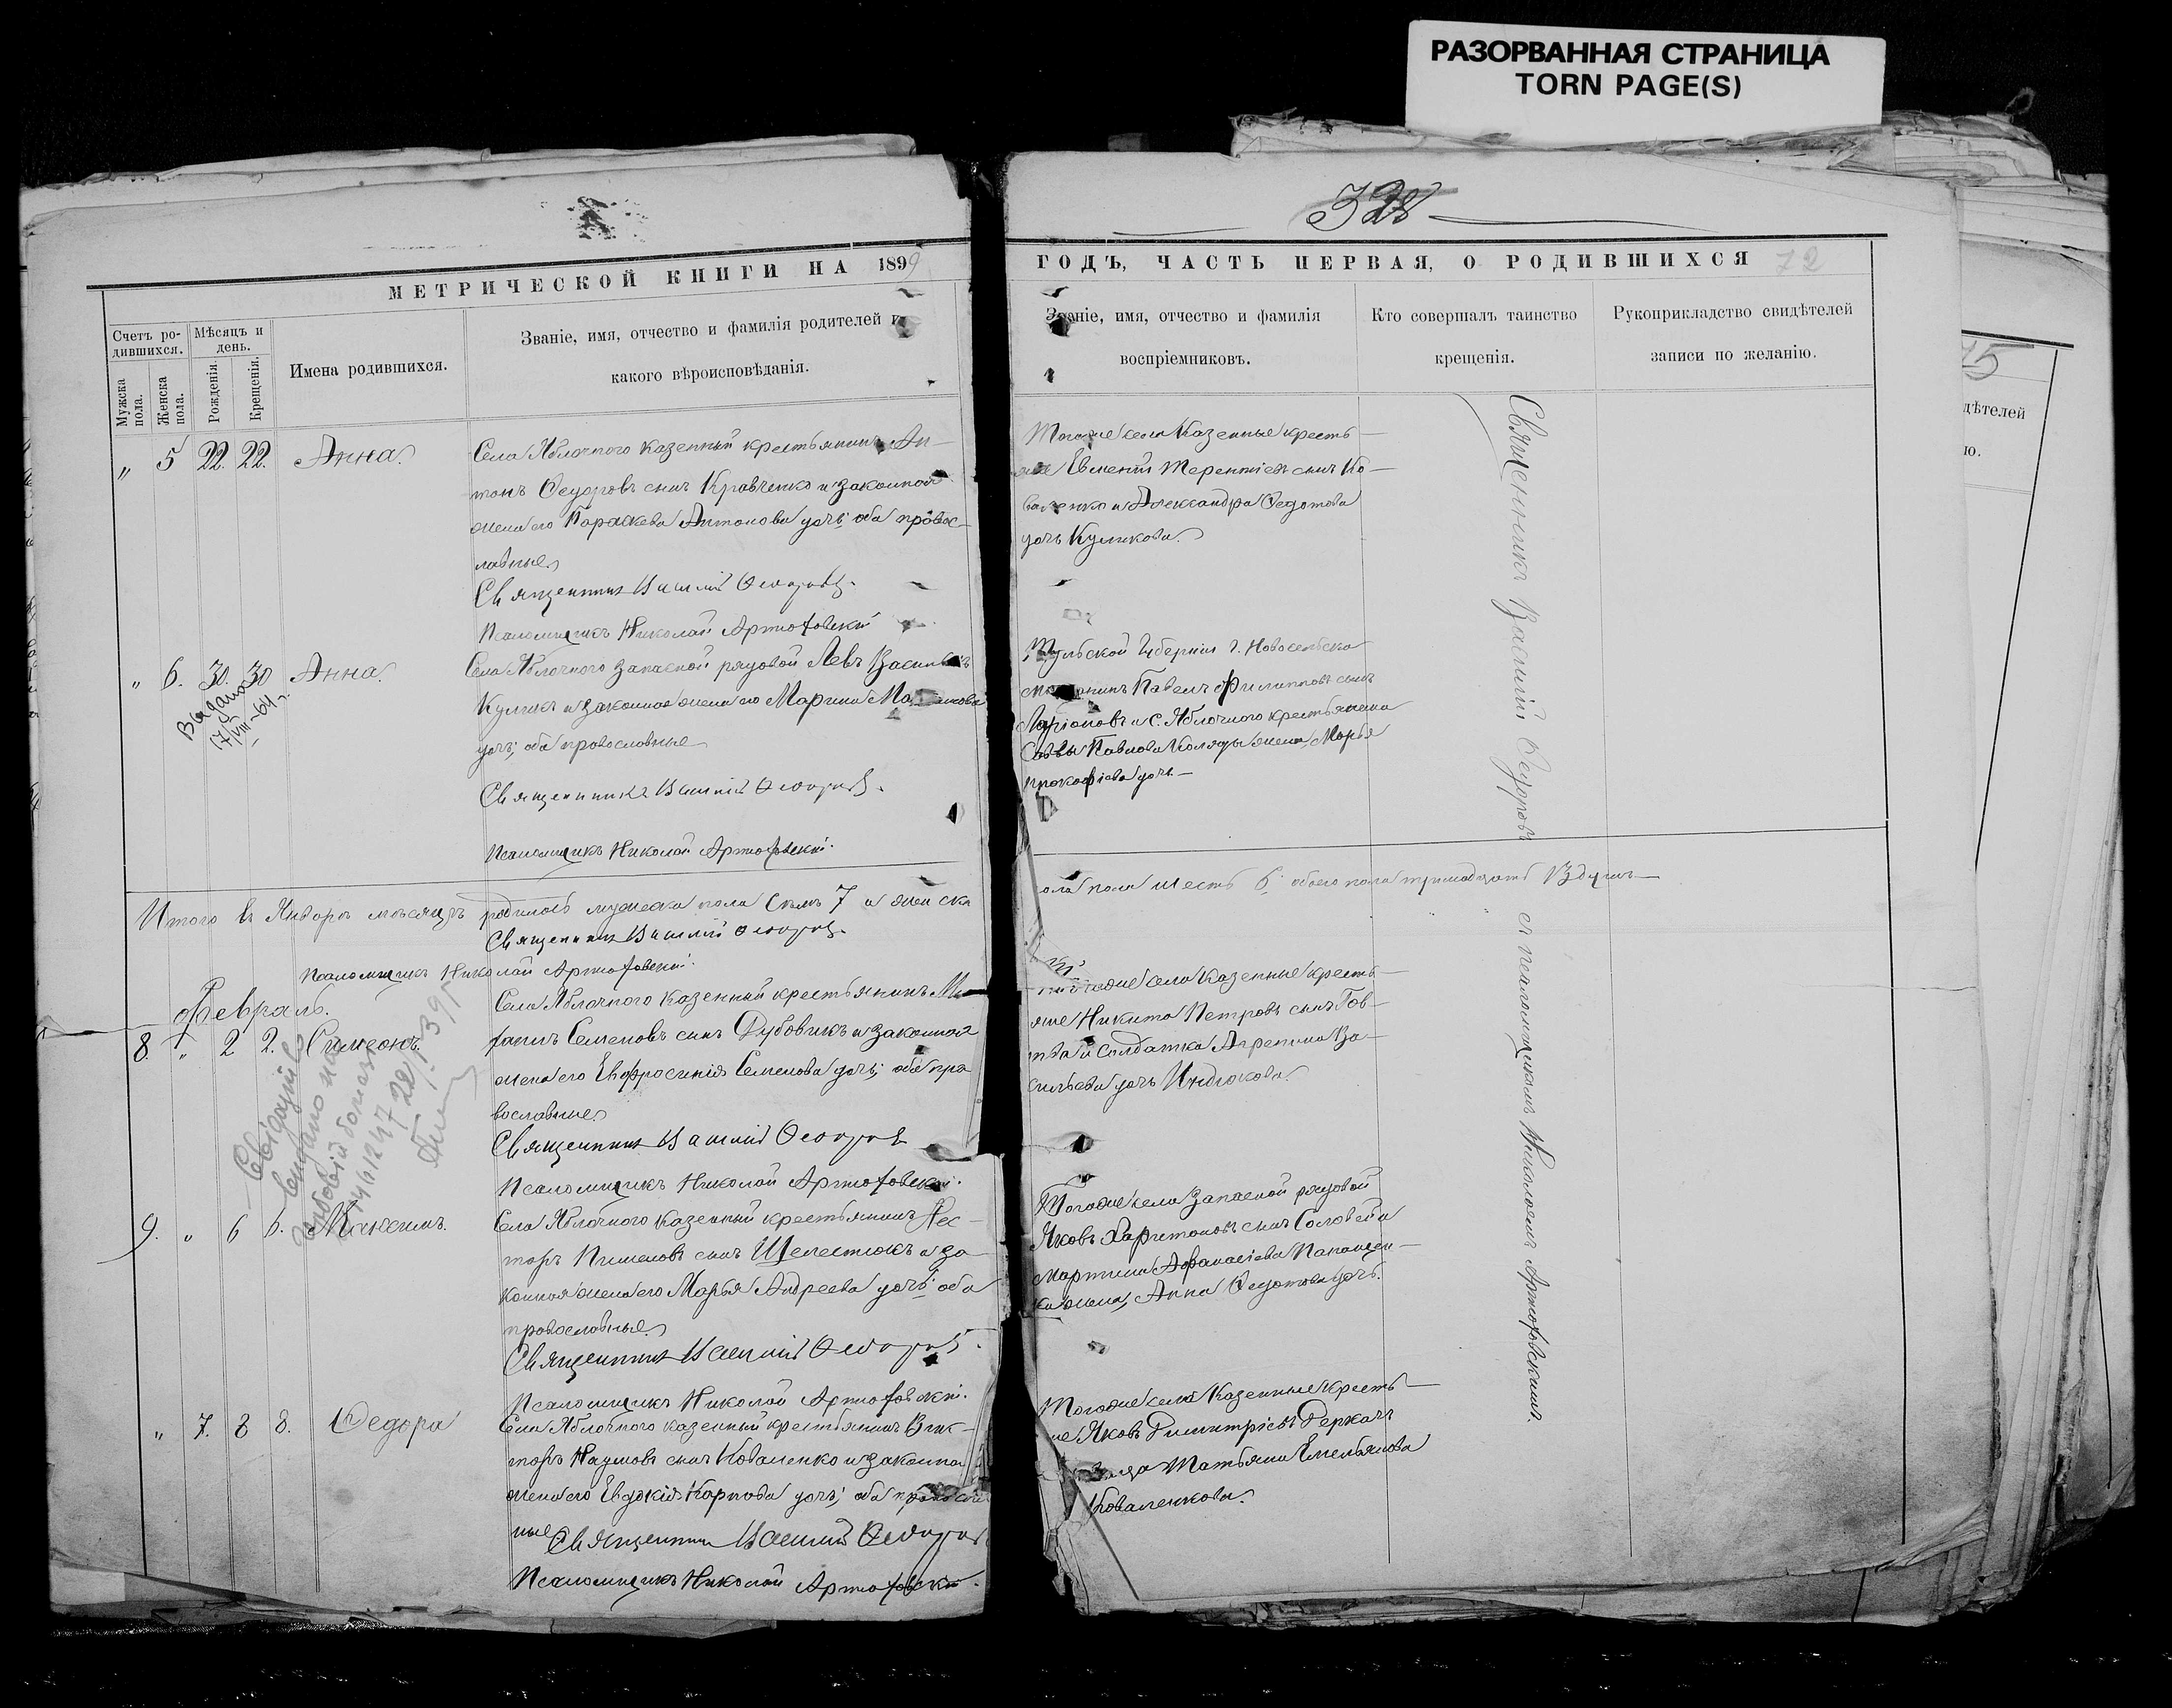 РАЗОРВАННАЯ СТРАНИЦА
TORN PAGE(S)
328
МЕТРИЧЕСКОЙ КНИГИ НА 1899
ГОДЪ, ЧАСТЬ ПЕРВАЯ, О РОДИВШИХСЯ 72
Счетъ ро-
дившихся.
Мужска пола.
Женска пола.
Мѣсяцъ и
день.
Рожденія.
Крещенія.
Имена родившихся.
Званіе, имя, отчество и фамилія родителей и
какого вѣроисповѣданія.
Званіе, имя, отчество и фамилія
воспріемниковъ.
Кто совершалъ таинство
крещенія.
Рукоприкладство свидѣтелей
записи по желанію.
„ 5 22. 22. Анна.
Села Яблочного казенный крестьянинъ Ан-
тонъ Федоровъ сынъ Кравченко и законная
жена его Параскева Антонова дочь; оба правос-
лавные
Священникъ Василій Федоровъ.
Псаломщикъ Николай Артюховскій
Тогоже села Казенные кресть-
яне Евмений Терентіевъ сынъ Ко-
валенко и Александра Федотова
дочь Куликова.
„ 6. 30. 30 Анна.
Выдано
17/VIII-64 г.
Села Яблочного запасной рядовой Левъ Васильевъ
Куликъ и законная жена его Марина
дочь; оба православные
Священникъ Василій Федоровъ.
Псаломщикъ Николай Артюховскій.
Тульской Губерніи г. Новосельска
Павелъ Филипповъ сынъ
Ларіоновъ и с. Яблочного крестьянина
Саввы Павлова Коляды жена, Марья
Прокофіева дочь.—
Итого въ Январѣ мѣсяцѣ родилось мужска пола семь 7 и женска
пола шесть 6; обоего пола тринадцать 13 душъ—
Священникъ Василій Федоровъ.
Псаломщикъ Николай Артюховскій.
Февраль.
8 „ 2 2. Симеонъ.
Села Яблочного казенный крестьянинъ Ми-
Семеновъ сынъ Дубовикъ и законная
жена его Евфросинія Семенова дочь; оба пра
вославные
Священникъ Василій Федоровъ
Псаломщикъ Николай Артюховскій.
Тогоже села Казенные кресть-
яне Никита Петровъ сынъ Гов-
и солдатка Агрепина Ва-
сильева дочь Индюкова.
9. „ 6 6. Максимъ.
Села Яблочного Казенный крестьянинъ Нес-
торъ Пименовъ сынъ Шелестюкъ и за-
конная жена его Марья Андреева дочь; оба
православные.
Священникъ Василій Федоровъ.
Псаломщикъ Николай Артюховскій.
Тогоже села запасной рядовой
Яковъ Харитоновъ сынъ Соловей и
Мартина Афанасіева
жена, Анна Федотова дочь.
„ 7. 8 8. Федора
Села Яблочного казенный крестьянинъ Вик-
торъ Наумовъ сынъ Коваленко и законная
жена его Евдокія Карпова дочь; оба православ
ные
Священникъ Василій Федоровъ
Псаломщикъ Николай Артюховскій.
Тогоже села Казенные кресть-
не Яковъ Димитріевъ Деркачъ
Татьяна Емельянова
Коваленкова.
Священникъ Василій Федоровъ съ псаломщикомъ Николаемъ Артюховскимъ